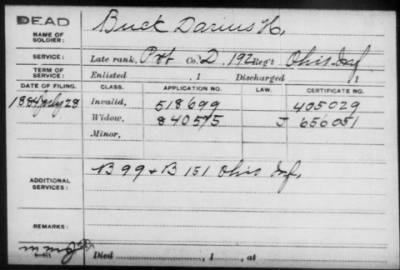 DEAD
NAME OF SOLDIER: Buck Darius H.
SERVICE: Late rank, Pvt Co. D, 192 Reg't Ohio Inf.
TERM OF SERVICE: Enlisted , 1 Discharged , 1
DATE OF FILING. CLASS. APPLICATION NO. LAW. CERTIFICATE NO.
1884 July 28 Invalid, 518699 405029
Widow, 840575 J 656051
Minor,
ADDITIONAL SERVICES: B 99 & B 151 Ohio Inf.
REMARKS:
Died , 1 , at